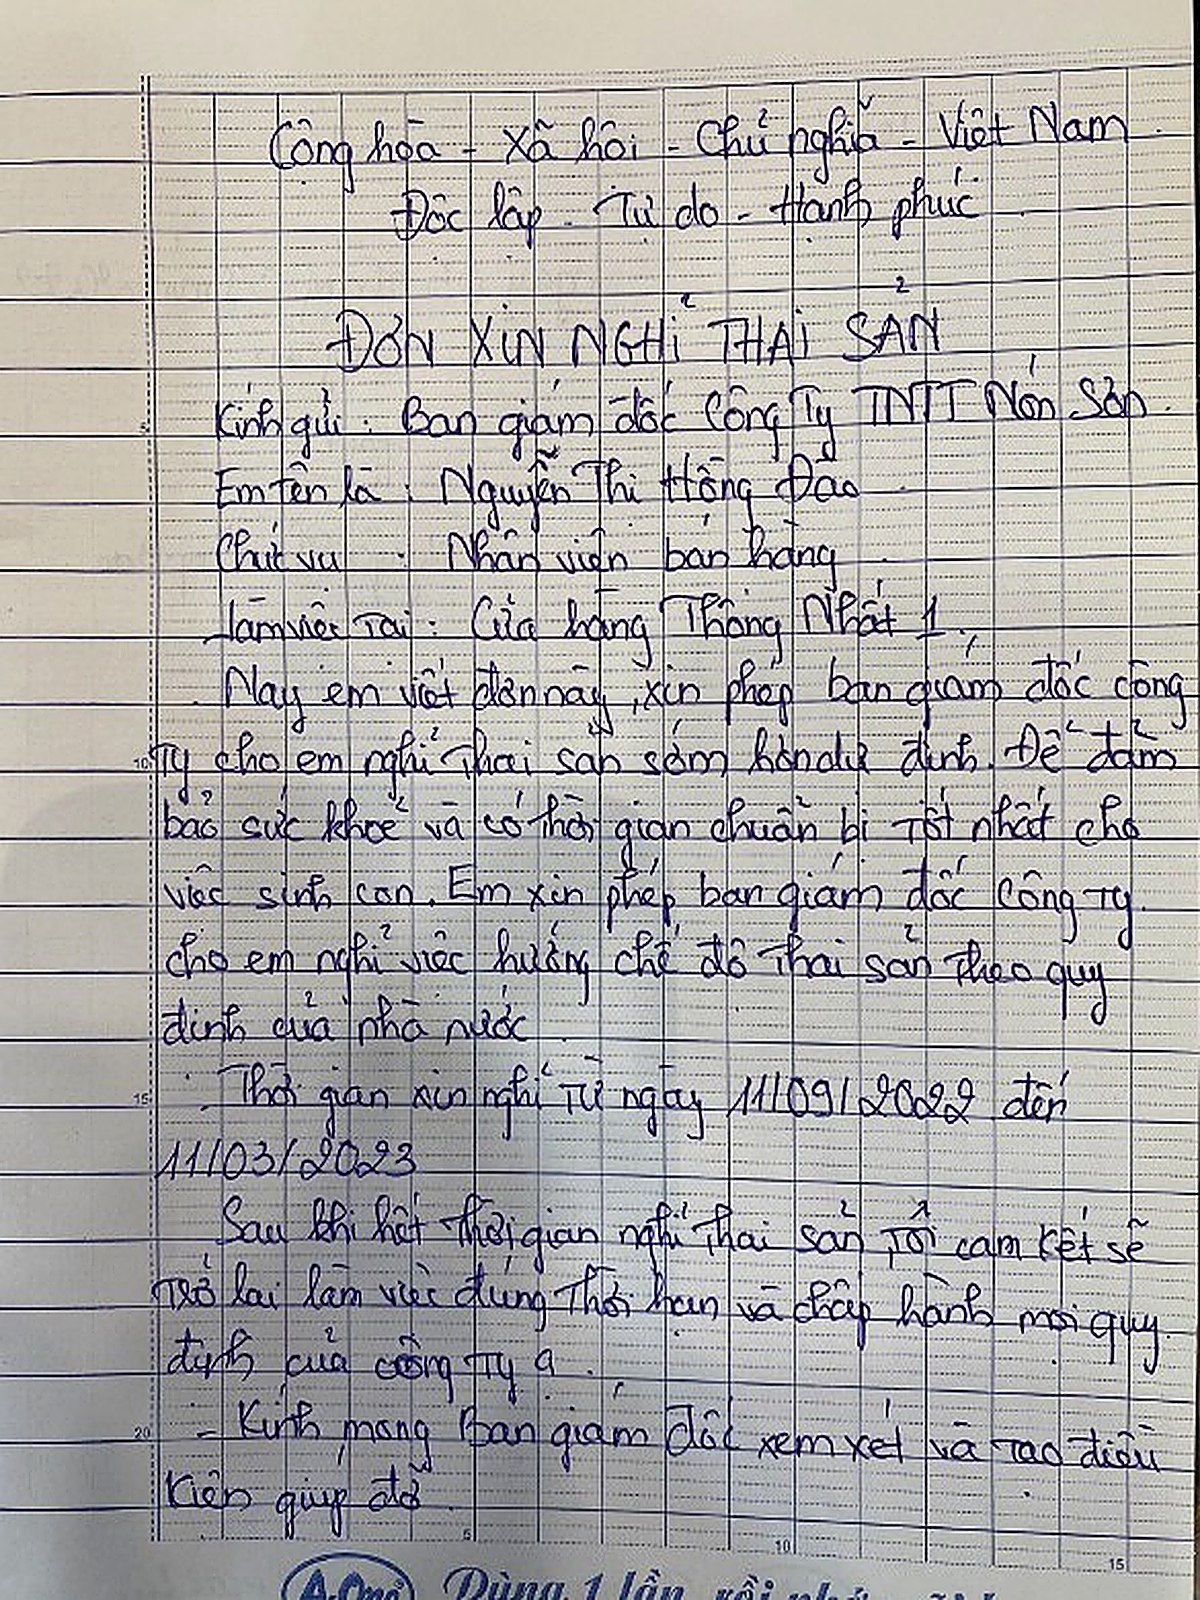 Cộng hòa - Xã hội - Chủ nghĩa - Việt Nam.
Độc lập - Tự do - Hạnh phúc
ĐƠN XIN NGHỈ THAI SẢN
Kính gửi: Ban giám đốc Công Ty TNTT Nón Sơn.
Em tên là: Nguyễn Thị Hồng Đào
Chức vụ : Nhân viên bán hàng
Làm việc Tại: Cửa hàng Thống Nhất 1.
Nay em viết đơn này, xin phép ban giám đốc công
Ty cho em nghỉ Thai sản sớm hơn dự định. Để đảm
bảo sức khoẻ và có thời gian chuẩn bị Tốt nhất cho
việc sinh con. Em xin phép ban giám đốc Công Ty
cho em nghỉ việc hưởng chế độ Thai sản Theo quy
định của nhà nước
Thời gian xin nghỉ Từ ngày 11/09/2022 đến
11/03/2023
Sau khi hết Thời gian nghỉ Thai sản Tôi cam kết sẽ
Trở lại làm việc đúng Thời hạn và chấp hành mọi quy
định của công Ty ạ.
- Kính mong Ban giám đốc xem xét và Tạo điều
Kiện giúp đỡ.
5
10
15
20
5
10
15
A.One Dùng 1 lần, rồi